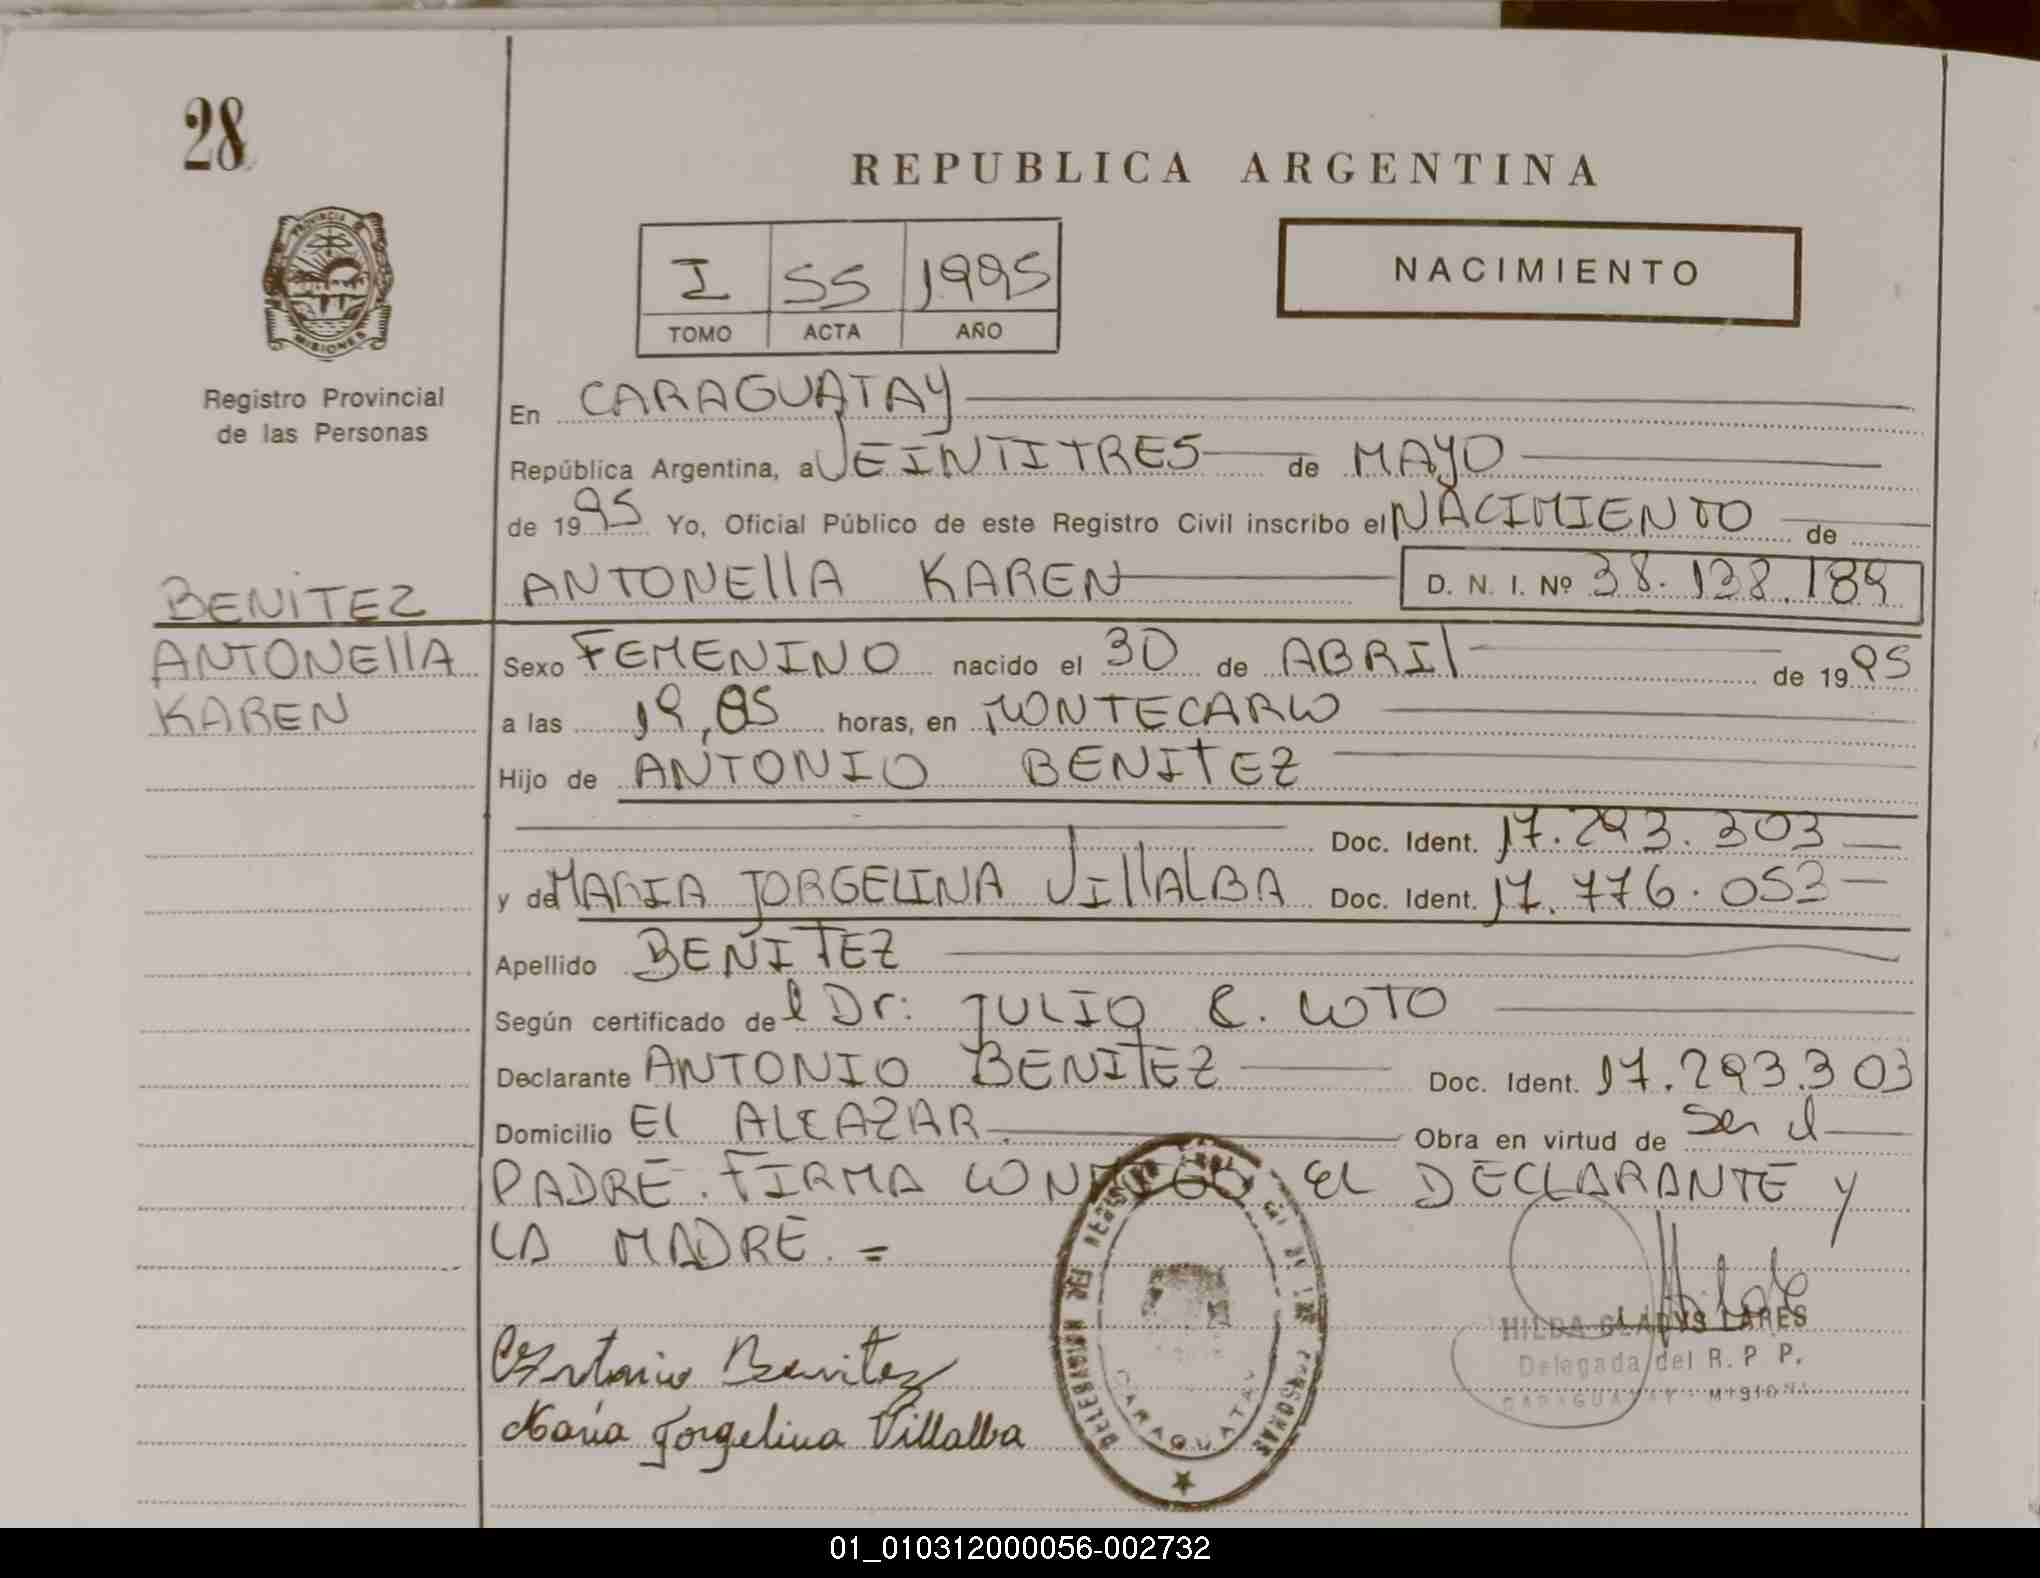 28
PROVINCIA DE
MISIONES
Registro Provincial
de las Personas
BENITEZ
ANTONEllA
KAREN
REPUBLICA ARGENTINA
I 55 1995
TOMO ACTA AÑO
NACIMIENTO
En CARAGUATAY
República Argentina, a VEINTITRES de MAYO
de 1995 Yo, Oficial Público de este Registro Civil inscribo el NACIMIENTO de
ANTONEllA KAREN D. N. I. Nº 38.138.189
Sexo FEMENINO nacido el 30 de ABRIl de 1995
a las 19,05 horas, en MONTECARLO
Hijo de ANTONIO BENITEZ
Doc. Ident. 17.293.303
y de MARIA JORGELINA VIllALBA Doc. Ident. 17.776.053
Apellido BENITEZ
Según certificado del Dr: JULIO R. LOTO
Declarante ANTONIO BENITEZ Doc. Ident. 17.293.303
Domicilio El ALCAZAR Obra en virtud de ser el
PADRE. FIRMA CONMIGO EL DECLARANTE y
LA MADRE. =
Antonio Benitez
María Jorgelina Villalba
CARAGUATAY
HILDA GLADYS LARES
Delegada del R. P. P.
CARAGUATAY - MISIONES
01_010312000056-002732